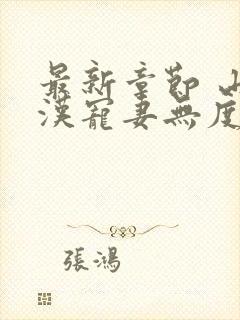 最新章節 山
漢寵妻無度
張鴻